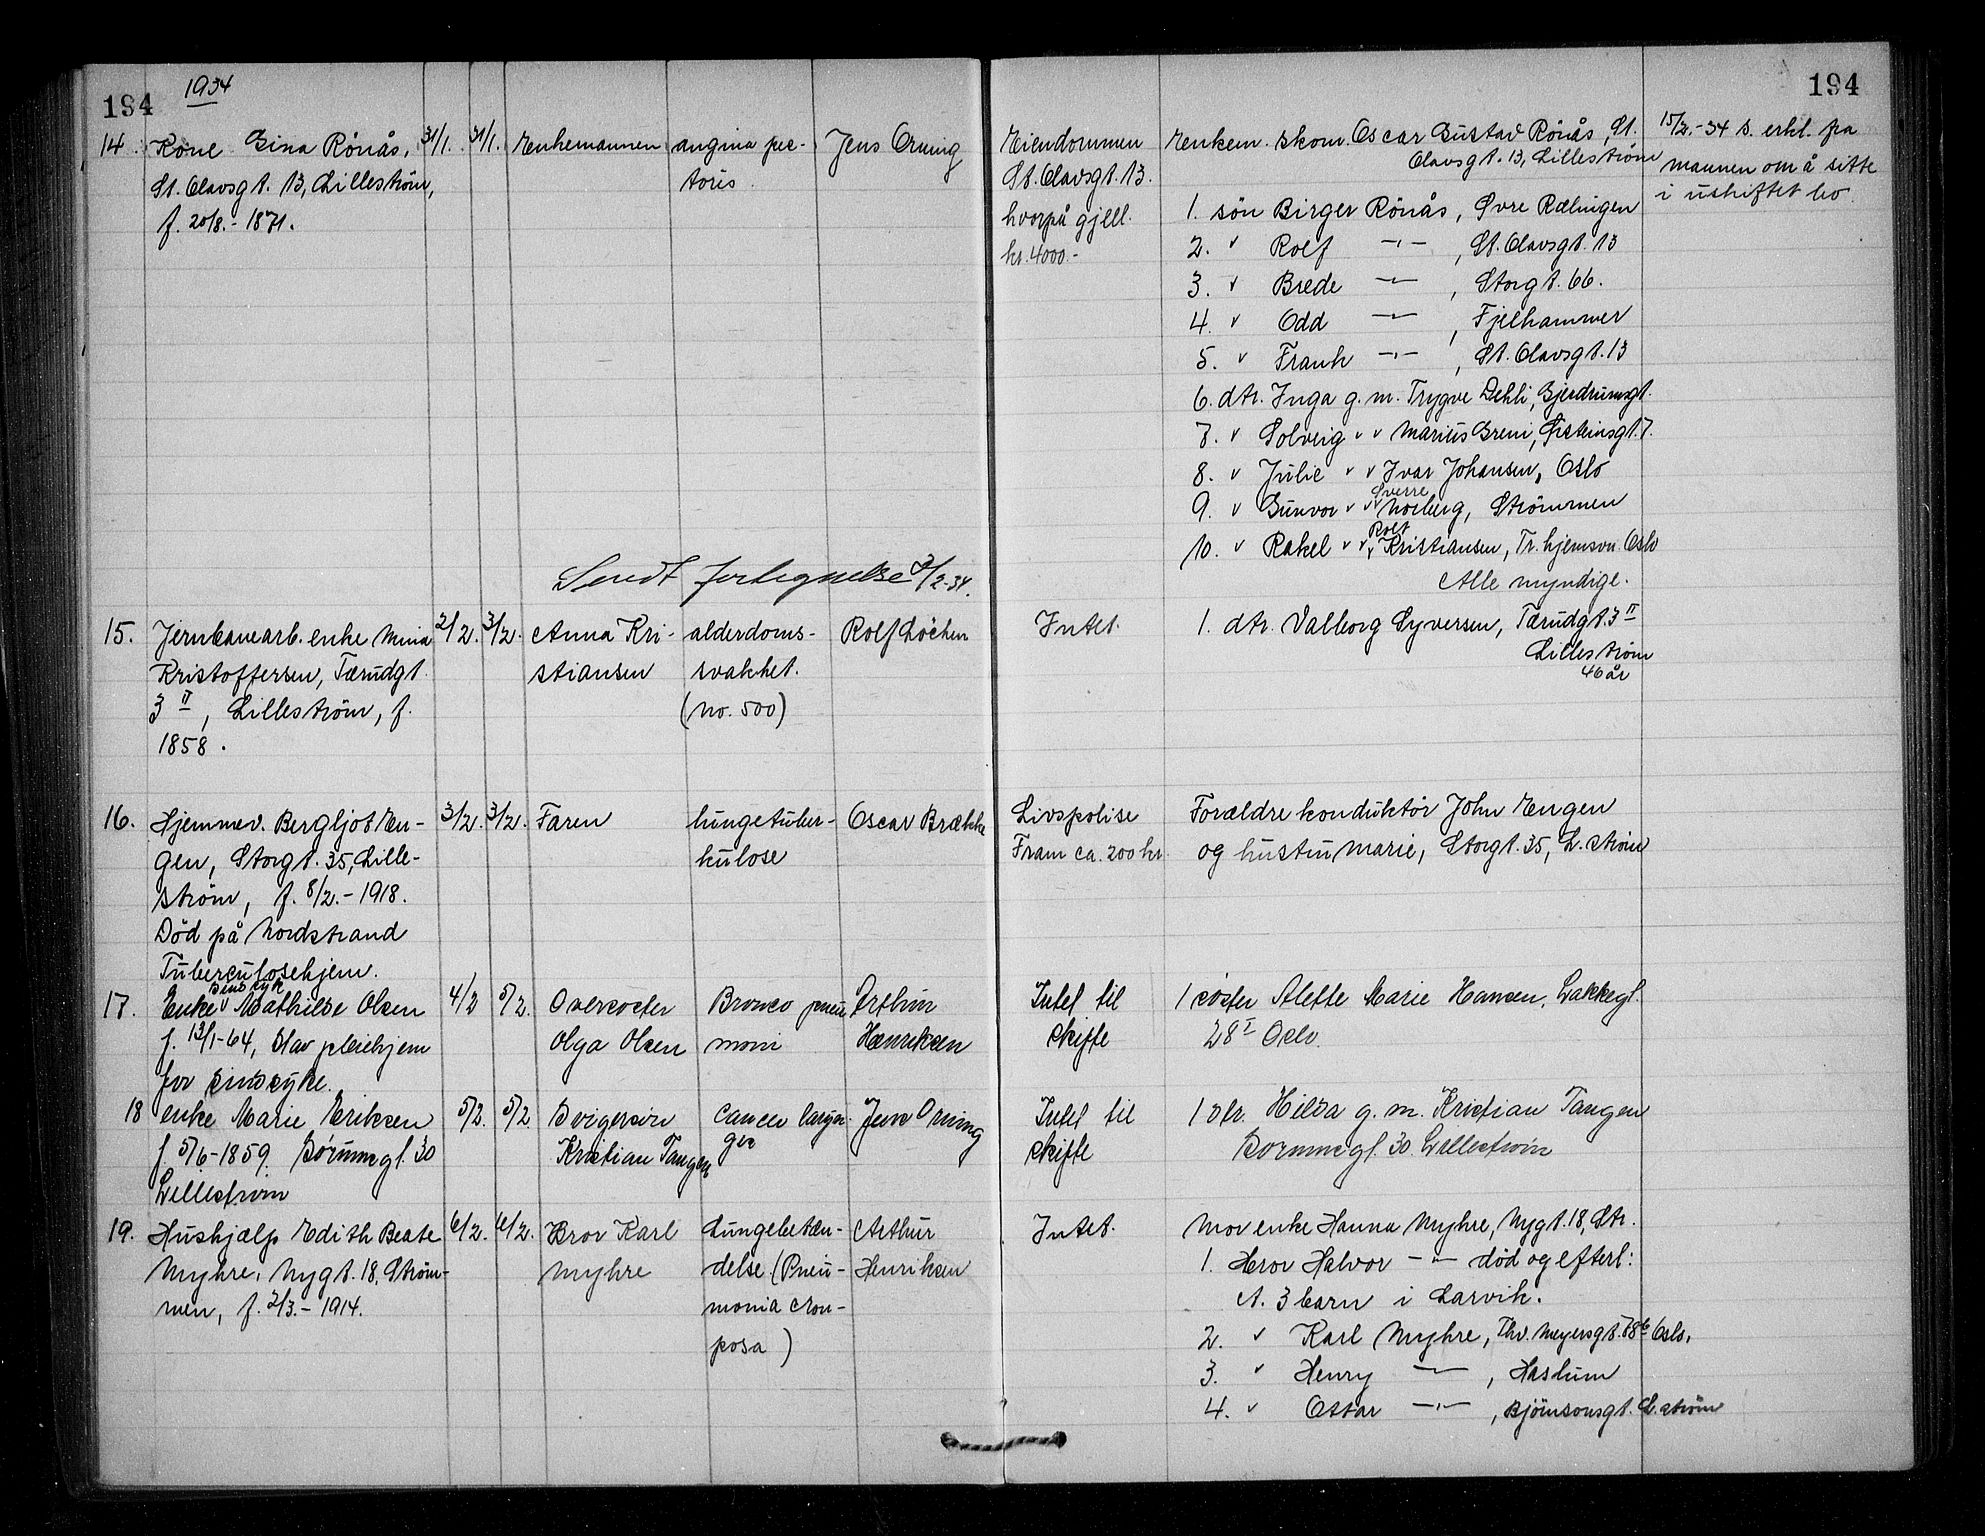 194
1934
194
14. Kone Gina Rönås, 31/1. 31/1. Enkemannen angina pec- Jens Orning
St. Olavsgt. 13, Lilleström, toris.
f. 20/8.-1871.
Eiendommen
St. Olavsgt. 13.
hvorpå gjell.
kr. 4000.-
Enkem. skom. Oscar Gustav Rönås, St.
Olavsgt. 13, Lilleström
1. sön Birger Rönås, Övre Rælingen
2. " Rolf -"-, St. Olavsgt. 13
3. " Brede -"-, Storgt. 66.
4. " Odd -"-, Fjelhammer
5. " Frank -"-, St. Olavsgt. 13
6. dtr. Inga g. m. Trygve Dehli, Gjerdrumsgt.
7. " Solveig " " Marius Greni, Östeinsgt. 7.
8. " Julie " " Ivar Johansen, Oslo
9. " Gunvor " " Sverre Norberg, Strömmen
10. " Rakel " " Rolf Kristiansen, Tr.hjemsvn. Oslo
Alle myndige.
15/2.-34 s. erkl. fra
mannen om å sitte
i uskiftet bo.
Sendt fortegnelse 3/2-34.
15. Jernbanearb. enke Mina 2/2. 3/2. Anna Kri- alderdoms- Rolf Löchen
Kristoffersen, Tærudgt. stiansen svakhet.
3 II, Lilleström, f. (no. 500)
1858.
Intet.
1. dtr. Valborg Syversen, Tærudgt. 3 II
Lilleström
46 år
16. Hjemmev. Bergljot En- 3/2. 3/2. Faren lungetuber- Oscar Brække
gen, Storgt. 35, Lille- kulose
ström, f. 8/2.-1918.
Död på Nordstrand
Tuberculosehjem.
Livspolise
Fram ca. 200 kr.
Forældre konduktör John Engen
og hustru Marie, Storgt. 35, L.ström
17. Enke sindssyk Mathilde Olsen 4/2 5/2. Oversöster Bronco pneu Arthur
f. 13/1-64, Olav pleiehjem Olga Olsen moni Henriksen
for sindssyke.
Intet til
skifte
1 söster Alette Marie Hansen. Lakkegt.
28 I Oslo.
18 enke Marie Eriksen 5/2. 5/2 Svigersön Cancer laryn- Jens Orning
f. 5/6-1859. Börumsgt. 30 Kristian Tangen gis
Lilleström
Intet til
skifte
1 dtr. Hilda g. m. Kristian Tangen
Börumsgt. 30 Lilleström
19. Hushjælp Edith Beate 6/2. 6/2. Bror Karl Lungebetæn- Arthur
Myhre, Nygt. 18, Ström- Myhre delse (Pneu- Henriksen
men, f. 2/3.-1914. monia crou-
posa)
Intet.
Mor enke Hanna Myhre, Nygt. 18, Str.
1. Bror Halvor -"- död og efterl:
A. 3 barn i Larvik.
2. " Karl Myhre, Thv. Meyersgt. 78 b Oslo.
3. " Henry -"-, Haslum
4. " Ottar -"-, Björnsonsgt. L.ström